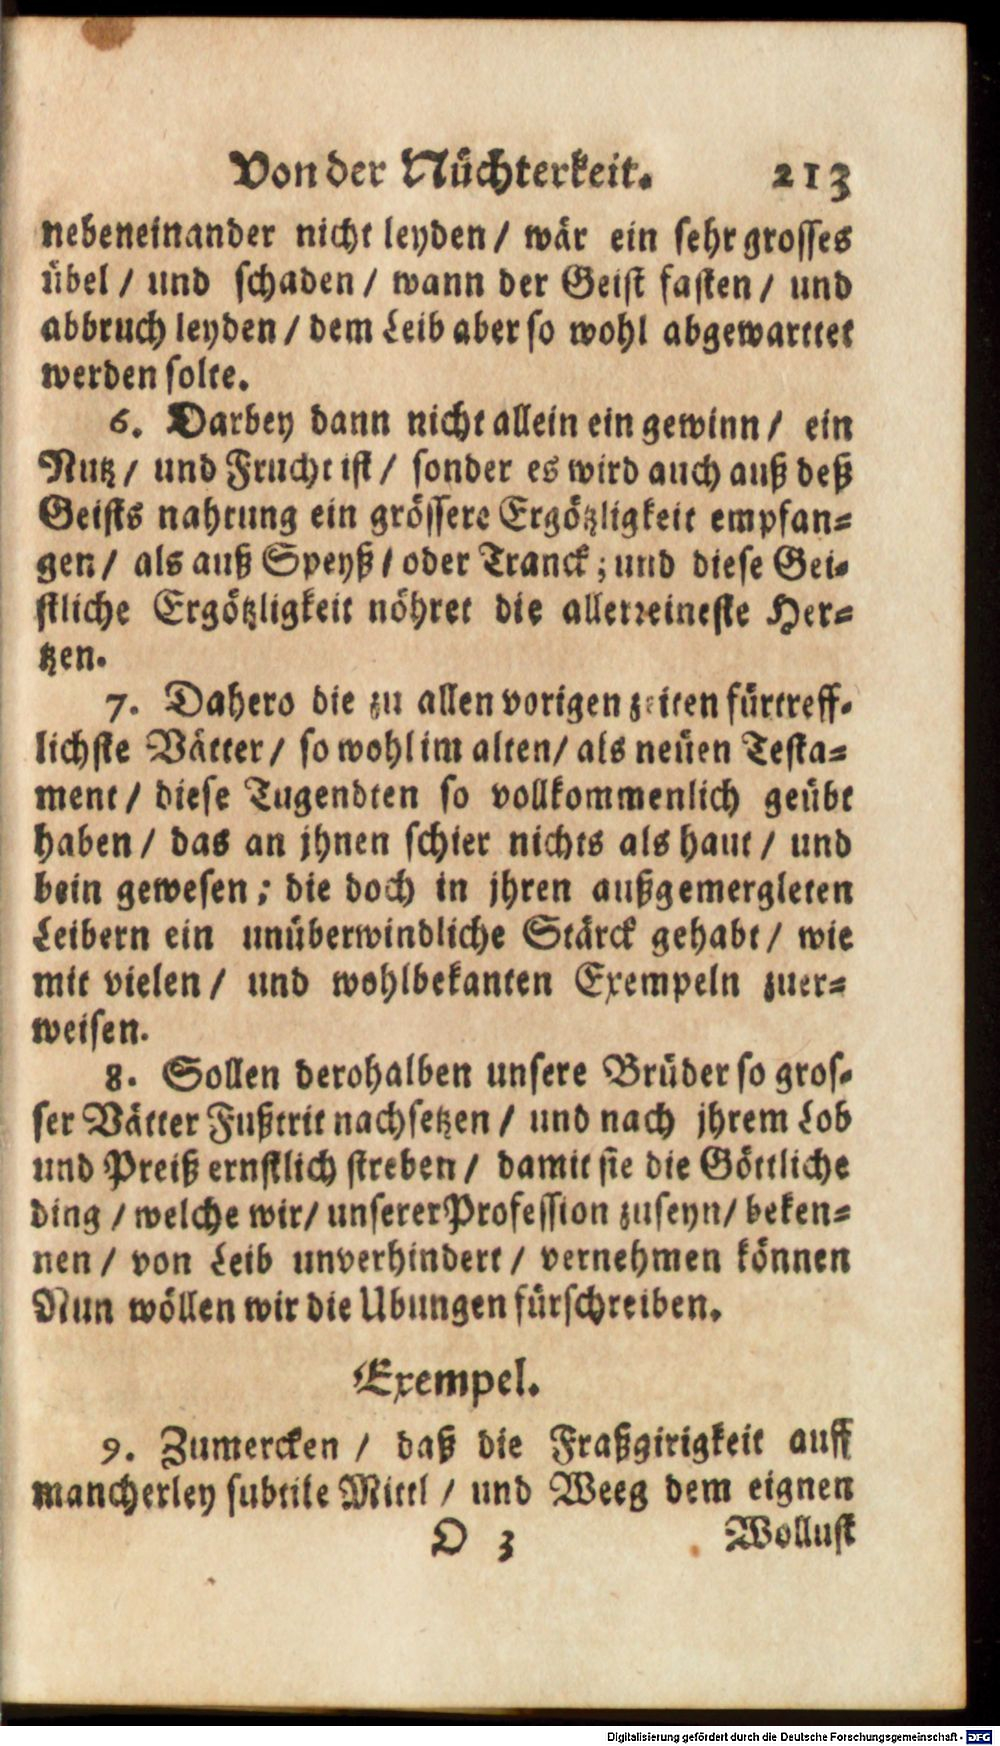 Von der Nüchterkeit. 213
nebeneinander nicht leyden / wär ein sehr grosses
übel / und schaden / wann der Geist fasten / und
abbruch leyden / dem Leib aber so wohl abgewarttet
werden solte.
6. Darbey dann nicht allein ein gewinn / ein
Nutz / und Frucht ist / sonder es wird auch auß deß
Geists nahrung ein grössere Ergötzligkeit empfan-
gen / als auß Speyß / oder Tranck; und diese Gei-
stliche Ergötzligkeit nöhret die allerreineste Her-
tzen.
7. Dahero die zu allen vorigen zeiten fürtreff-
lichste Vätter / so wohl im alten / als neüen Testa-
ment / diese Tugendten so vollkommenlich geübt
haben / das an jhnen schier nichts als haut / und
bein gewesen; die doch in jhren außgemergleten
Leibern ein unüberwindliche Stärck gehabt / wie
mit vielen / und wohlbekanten Exempeln zuer-
weisen.
8. Sollen derohalben unsere Brüder so gros-
ser Vätter Fußtrit nachsetzen / und nach jhrem Lob
und Preiß ernstlich streben / damit sie die Göttliche
ding / welche wir / unserer Profession zuseyn / beken-
nen / von Leib unverhindert / vernehmen können
Nun wöllen wir die Ubungen fürschreiben.
Exempel.
9. Zumercken / daß die Fraßgirigkeit auff
mancherley subtile Mittl / und Weeg dem eignen
O 3 Wollust
Digitalisierung gefördert durch die Deutsche Forschungsgemeinschaft - DFG